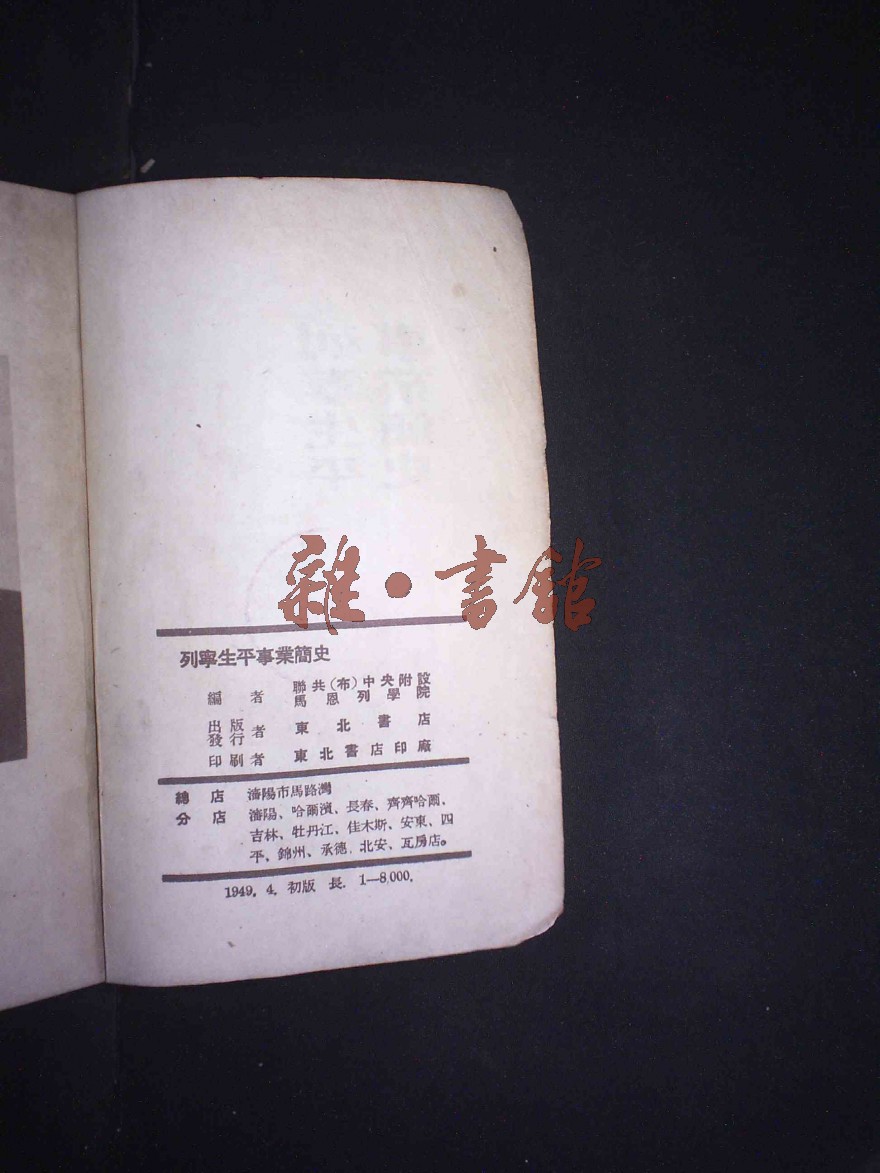 雜·書館
列寧生平事業簡史
編者 聯共(布)中央附設
馬恩列學院
出版
發行者 東北書店
印刷者 東北書店印廠
總店 瀋陽市馬路灣
分店 瀋陽、哈爾濱、長春、齊齊哈爾、
吉林、牡丹江、佳木斯、安東、四
平、錦州、承德、北安、瓦房店。
1949. 4. 初版 長. 1—8,000.